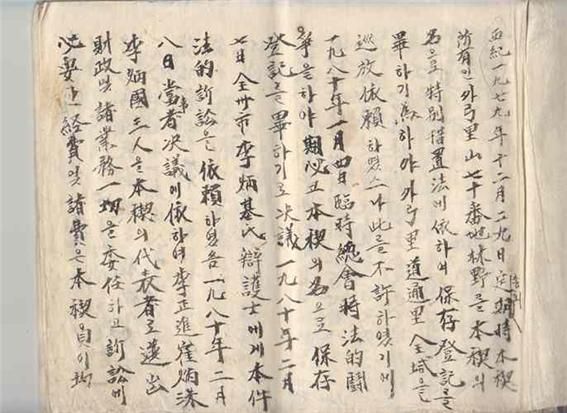 西紀一九七九年十二月二九日定期時本稧
所有인外弓里山七十番地林野를本稧의
名으로特別措置法에依하여保存登記를
畢하기爲하야外弓里道通里全域을
巡放依賴하였으나此를不許하였기에
一九八十年一月四日臨時總會時法的鬪
爭을하야期必고本稧의名으로保存
登記를畢하기로決議一九八十年二月
七日全州市李炳基氏辯護士에게本件
法的訴訟을依賴하였음一九八十年二月
八日當事者決議에依하여李正進崔炳洙
李炳國三人을本稧의代表者로選出
財政및諸業務一切을委任하고訴訟에
必要한經費및諸費은本稧員이